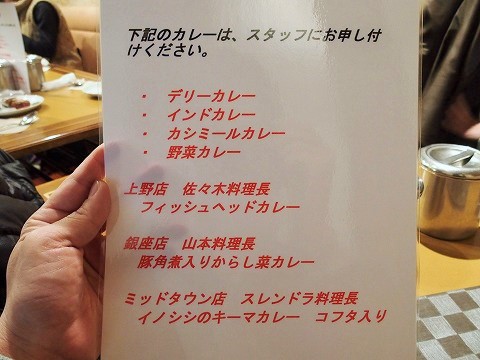 下記のカレーは、スタッフにお申し付
けください。
・ デリーカレー
・ インドカレー
・ カシミールカレー
・ 野菜カレー
上野店 佐々木料理長
フィッシュヘッドカレー
銀座店 山本料理長
豚角煮入りからし菜カレー
ミッドタウン店 スレンドラ料理長
イノシシのキーマカレー コフタ入り